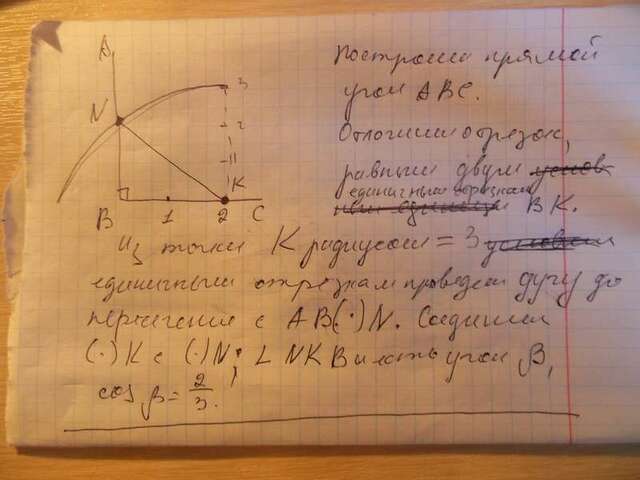 A
3
N
2
1
K
B 1 2 C
Построим прямой
угол ABC.
Отложим отрезок,
равный двум
единичным отрезкам
BK.
из точки K радиусом = 3
единичным отрезкам проведем дугу до
пересечения с AB (·) N. Соединим
(·) K с (·) N; ∠ NKB и есть угол β,
cos β = 2/3.